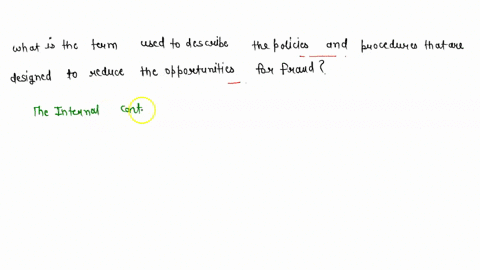 what is the term used to describe the policies and procedures that are
designed to reduce the opportunities for fraud?
The Internal cont.